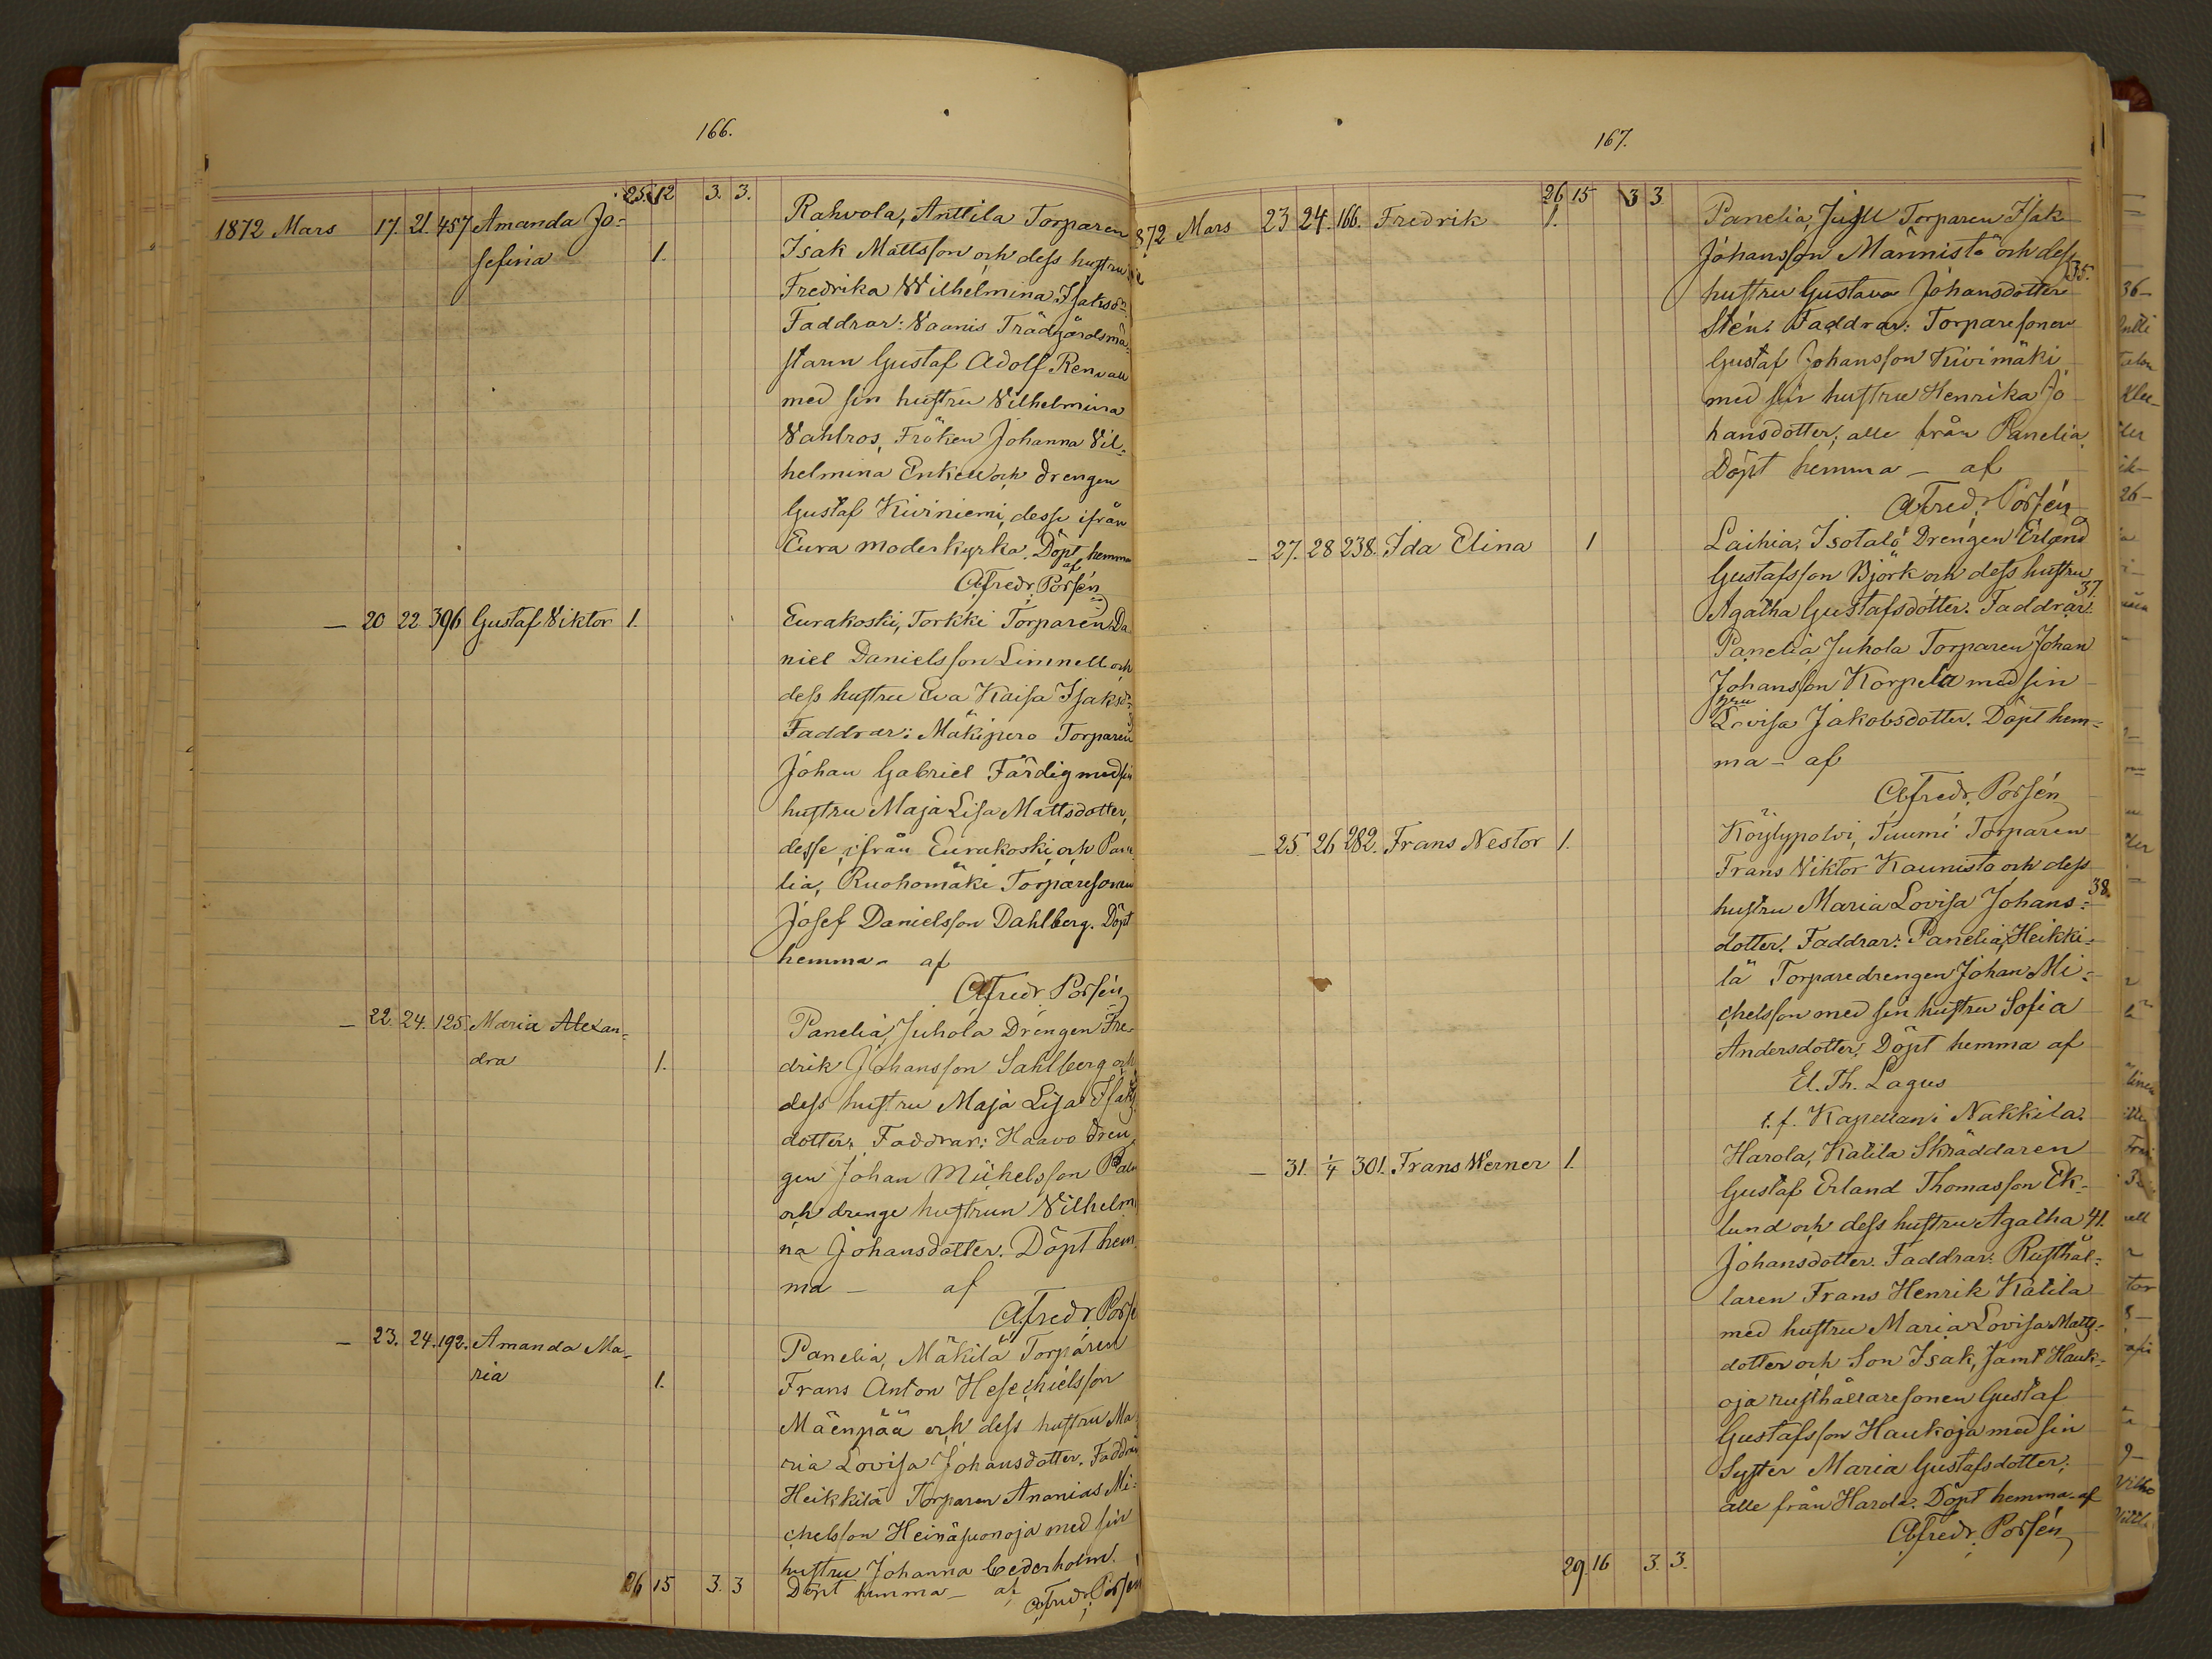 166.
25. 12 3. 3.
1872 Mars 17. 21. 457 Amanda Jo= Rahvola, Anttila Torparen
sefina 1. Isak Mattsson och dess hustru
Fredrika Wilhelmina Isaksdr
Faddrar: Vaanis Trädgårdsmä=
staren Gustaf Adolf Renvall
med sin hustru Vilhelmina
Vahlros, Fröken Johanna Vil=
helmina Enkell och drengen
Gustaf Kiviniemi, desse ifrån
Eura moderkyrka. Döpt hemma
af
Afredr. Porsén
— 20 22 396 Gustaf Viktor 1. Eurakoski, Torkki Torparen Da
niel Danielsson Limnell och
dess hustru Eva Kaisa Isaksdr
Faddrar: Mäkipero Torparen
Johan Gabriel Färdig med sin
hustru Maja Lisa Mattsdotter,
desse ifrån Eurakoski, och Pane
lia, Ruohomäki Torparesonen
Josef Danielsson Dahlberg. Döpt
hemma - af
Afredr Porsén
— 22. 24. 125. Maria Alexan= Panelia, Juhola Drengen Fre
dra 1. drik Johansson Sahlberg och
dess hustru Maja Lisa Isaks
dotter. Faddrar: Haavo dren
gen Johan Mickelsson Palm
och drenge hustrun Vilhelmi
na Johansdotter. Döpt hem
ma — af
Afredr Porsé
— 23. 24. 192. Amanda Ma= Panelia, Mäkilä Torparen
ria 1. Frans Anton Hesechielsson
Mäenpää och dess hustru Ma
ria Lovisa Johansdotter. Faddrar
Heikkilä Torparen Ananias Mi=
chelsson Heinäsuonoja med sin
hustru Johanna Cederholm.
26 15 3. 3 Döpt hemma — af Afredr. Porsén
167.
26 15 3 3
872 Mars 23 24. 166. Fredrik 1. Panelia, Jusell Torparen Isak
Johansson Männistö och dess
35.
hustru Gustava Johansdotter
Stén. Faddrar: Torparesonen
Gustaf Johansson Kivimäki
med sin hustru Henrika Jo
hansdotter; alle från Panelia.
Döpt hemma — af
Afredr. Porsén
— 27. 28 238. Ida Elina 1 Laihia, Isotalo Drengen Erland
Gustafsson Björk och dess hustru
37.
Agatha Gustafsdotter. Faddrar:
Panelia, Juhola Torparen Johan
Johansson Korpela med sin
hru
Lovisa Jakobsdotter. Döpt hem=
ma — af
Afredr. Porsén
— 25. 26 282. Frans Nestor 1. Köylypolvi, Tuumi Torparen
Frans Viktor Kaunisto och dess
38.
hustru Maria Lovisa Johans=
dotter. Faddrar: Panelia, Heikki=
lä Torparedrengen Johan Mi=
chelsson med sin hustru Sofia
Andersdotter. Döpt hemma af
El. Th. Lagus
t. f. Kapellan i Nakkila.
— 31. 1/4 301. Frans Werner 1. Harola, Katila Skräddaren
Gustaf Erland Thomasson Ek=
lund och dess hustru Agatha 41.
Johansdotter. Faddrar: Rusthål=
laren Frans Henrik Katila
med hustru Maria Lovisa Matts=
dotter och Son Isak, samt Hauk=
oja rusthållaresonen Gustaf
Gustafsson Haukoja med sin
Syster Maria Gustafsdotter;
alle från Harola. Döpt hemma af
Afredr. Porsén
29. 16 3. 3.